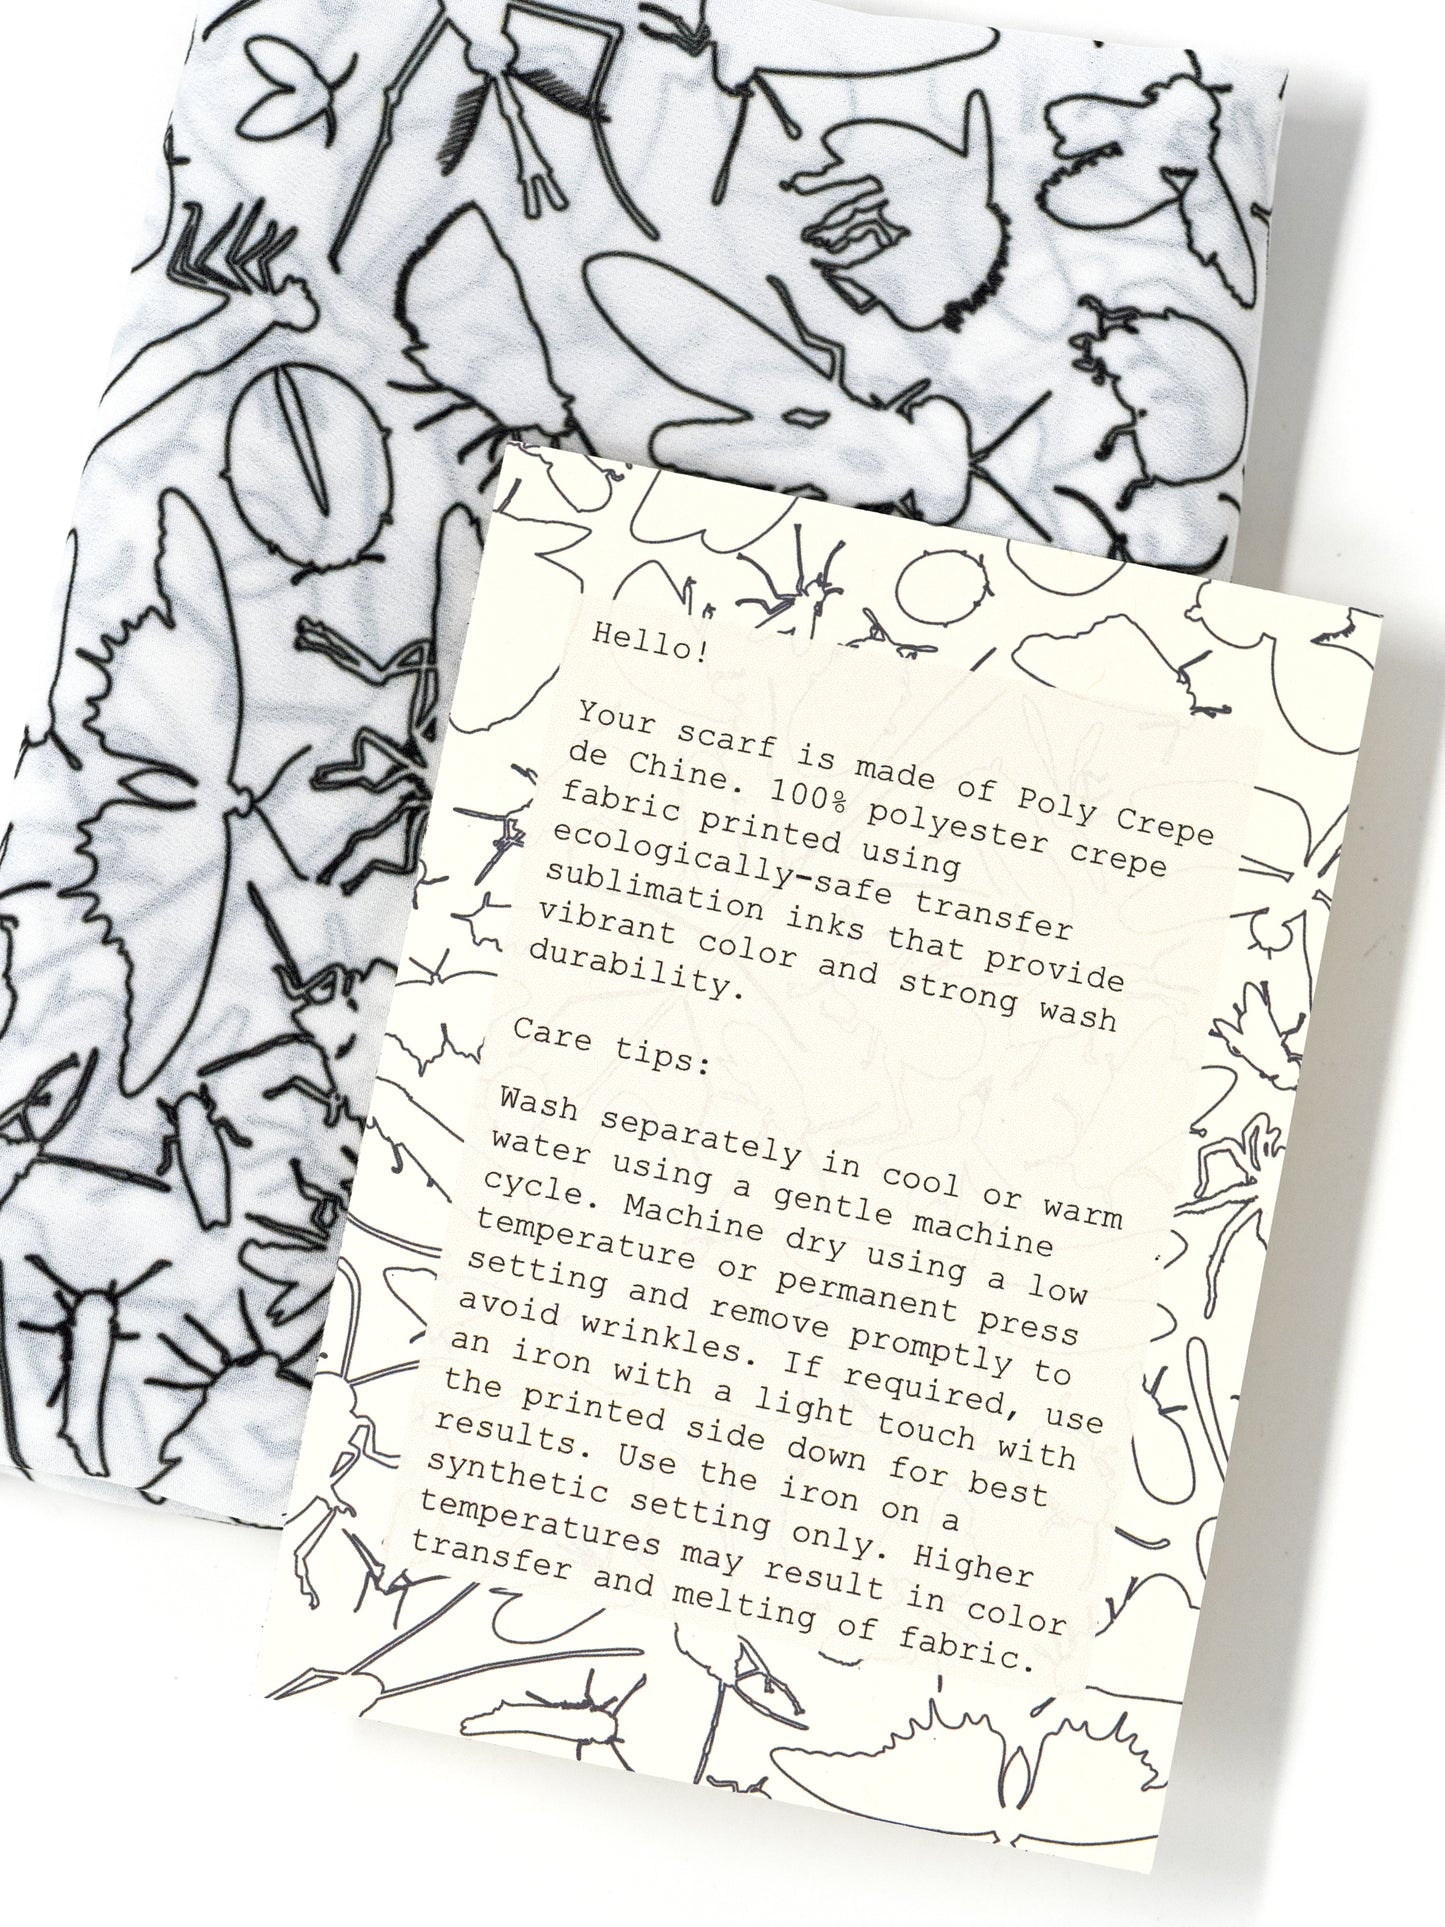 Hello!
Your scarf is made of Poly Crepe
de Chine. 100% polyester crepe
fabric printed using
ecologically-safe transfer
sublimation inks that provide
vibrant color and strong wash
durability.
Care tips:
Wash separately in cool or warm
water using a gentle machine
cycle. Machine dry using a low
temperature or permanent press
setting and remove promptly to
avoid wrinkles. If required, use
an iron with a light touch with
the printed side down for best
results. Use the iron on a
synthetic setting only. Higher
temperatures may result in color
transfer and melting of fabric.